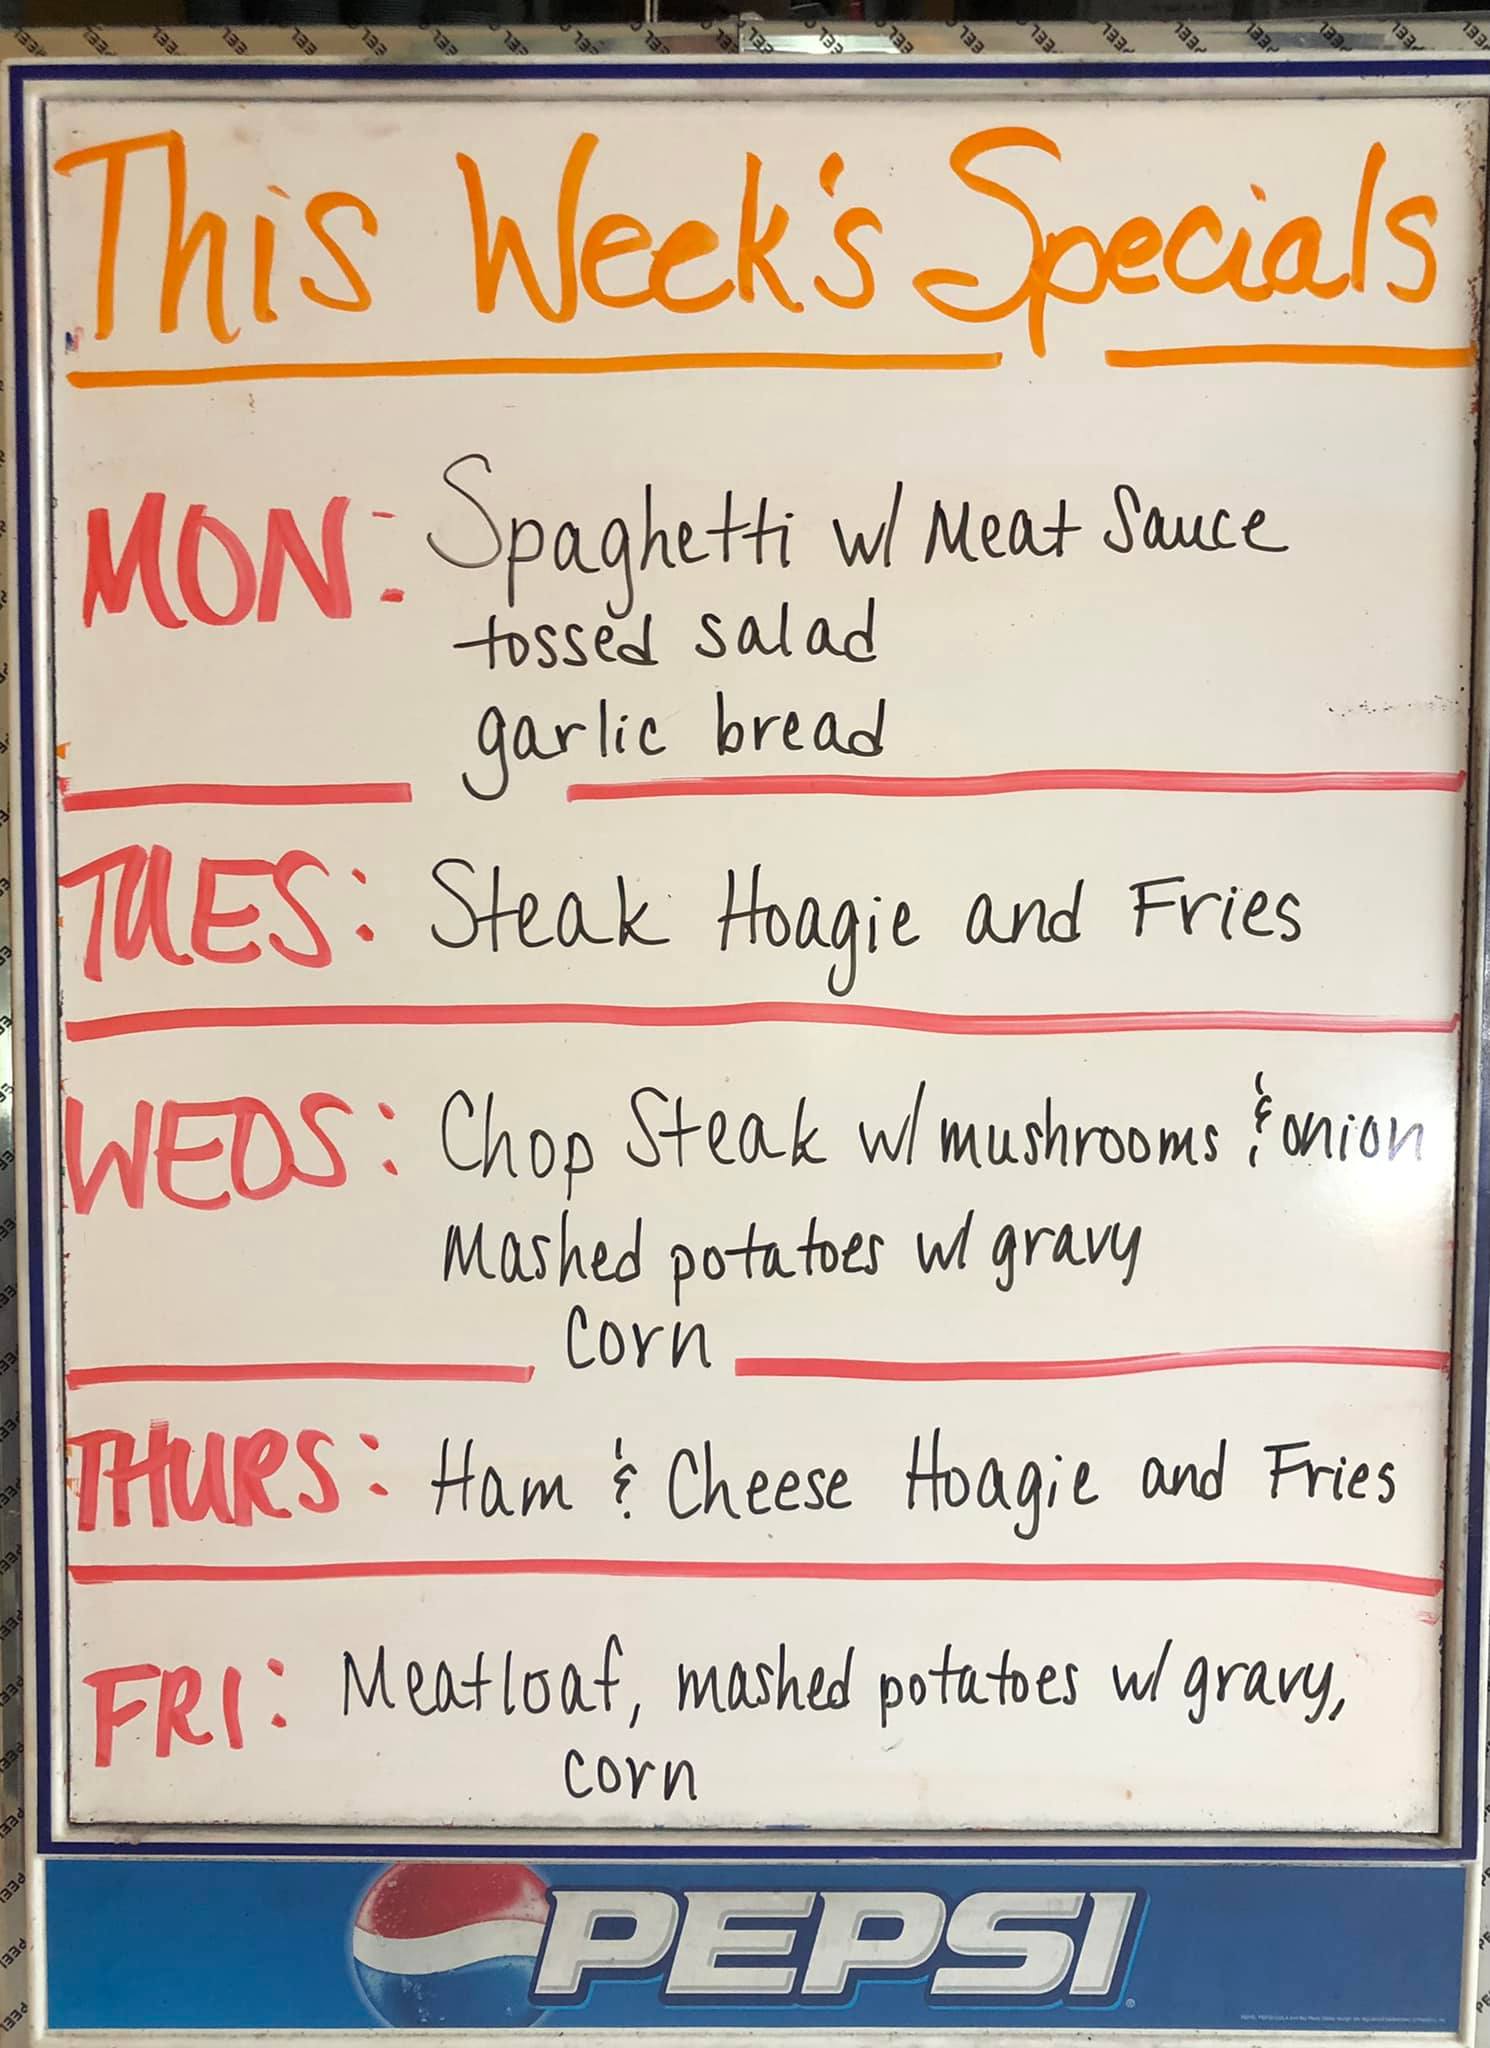 This Week's Specials
MON: Spaghetti w/ Meat Sauce
tossed salad
garlic bread
TUES: Steak Hoagie and Fries
WEDS: Chop Steak w/ mushrooms & onion
Mashed potatoes w/ gravy
Corn
THURS: Ham & Cheese Hoagie and Fries
FRI: Meatloaf, mashed potatoes w/ gravy,
corn
PEPSI